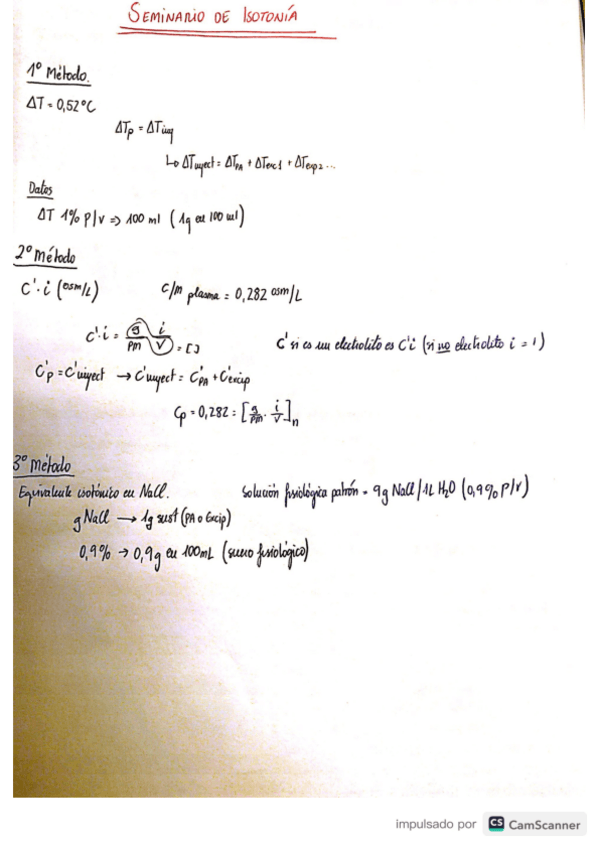 SEMINARIO DE ISOTONÍA
1º Método.
ΔT = 0,52ºC
ΔTp = ΔTinq
↳ ΔTinyect = ΔTPA + ΔTexc1 + ΔTexp2 ...
Datos
ΔT 1% P/V => 100 ml (1g en 100 ml)
2º Método
C'·i (osm/L) C/m plasma = 0,282 osm/L
C'·i = g/PM · i/V = [ ] C' si es un electrolito es C'i (si no electrolito i = 1)
C'p = C'inyect → C'inyect = C'PA + C'excip
Cp = 0,282 = [g/PM · i/V]n
3º Método
Equivalente isotónico en NaCl. Solución fisiológica patrón = 9g NaCl/1L H2O (0,9% P/V)
g NaCl → 1g sust (PA o Excip)
0,9% → 0,9g en 100mL (suero fisiológico)
impulsado por CS CamScanner